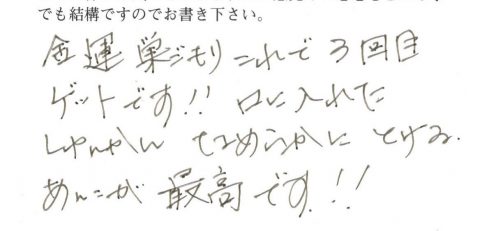 でも結構ですのでお書き下さい。
金運巣ごもりこれで3回目
ゲットです!! 口に入れた
しゅんかん なめらかに とける
あんこが 最高です!!